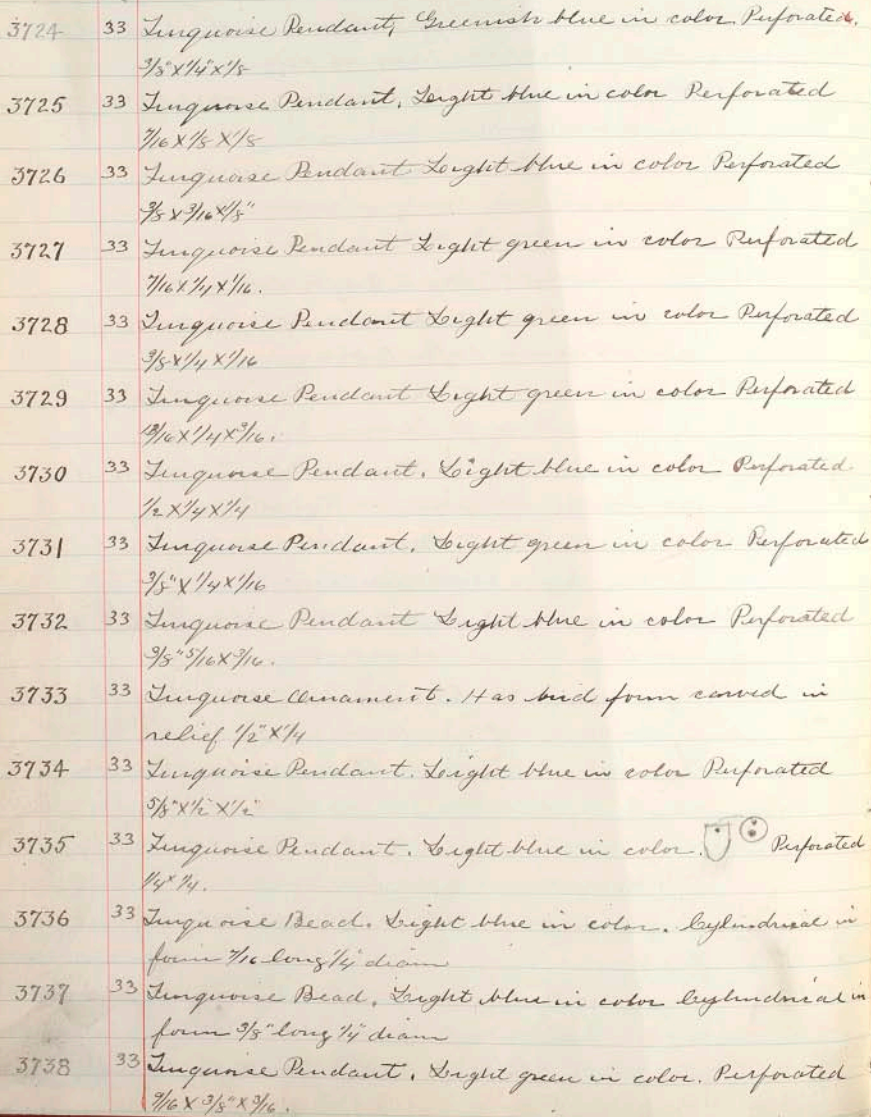 3724 33 Turquoise Pendant, Greenish blue in color Perforated.
3/8" X 1/4" X 1/8
3725 33 Turquoise Pendant. Light blue in color Perforated
7/16 X 1/8 X 1/8
3726 33 Turquoise Pendant Light blue in color Perforated
3/8 X 3/16 X 1/8"
3727 33 Turquoise Pendant Light green in color Perforated
7/16 X 1/4 X 1/16.
3728 33 Turquoise Pendant Light green in color Perforated
3/8 X 1/4 X 1/16
3729 33 Turquoise Pendant Light green in color Perforated
X 1/4 X 3/16.
3730 33 Turquoise Pendant. Light blue in color Perforated.
1/2 X 1/4 X 1/4
3731 33 Turquoise Pendant. Light green in color Perforated
3/8" X 1/4 X 1/16
3732 33 Turquoise Pendant Light blue in color Perforated
3/8" 5/16 X 3/16.
3733 33 Turquoise Ornament. Has bird form carved in
relief 1/2" X 1/4
3734 33 Turquoise Pendant. Light blue in color Perforated
5/8" X 1/2 X 1/2"
3735 33 Turquoise Pendant. Light blue in color. Perforated
1/4 X 1/4.
3736 33 Turquoise Bead. Light blue in color. Cylindrical in
form 7/16 long 1/4" diam
3737 33 Turquoise Bead. Light blue in color Cylindrical in
form 3/8" long 1/4" diam
3738 33 Turquoise Pendant. Light green in color. Perforated
9/16 X 3/8" X 3/16.